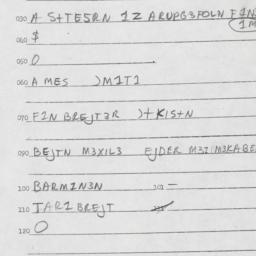 030 A S+TESRN 1Z ARUPG3FOLN F1N
040 $
050 O
060 A MES )M1T1
070 F1N BREJT3R )+KIS+N
090 BEJTN M3XIL3 EJDER M3Z1M3KABE
100 BARM1N3N 101 —
110 TAR1 BREJT
120 O